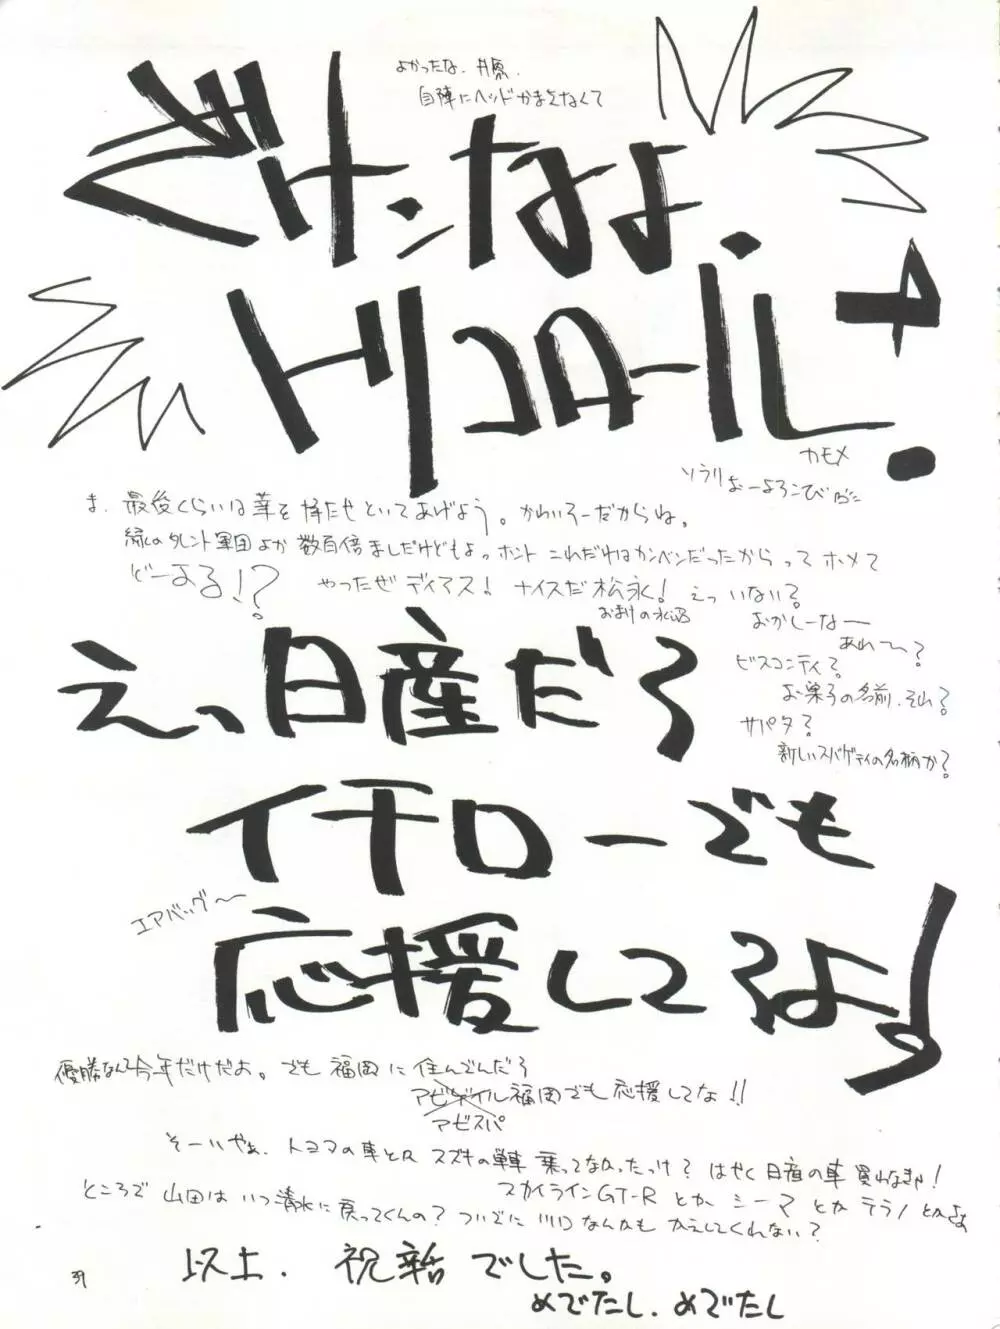 よかったな、井原。
自陣にヘッドかまえなくて
ざけんなよ、
トリコロール!
カモメ
ソラリよーよろこびが
ま、最後くらいは華を持たせといてあげよう。かわいそーだからね。
緑のタレント軍団よか数百倍ましだけどもよっホント これだけはカンベンだったからってホメて
どーする!?
やったぜディアス! ナイスだ松永! えっいない?
おまけの水沼
おかしーなー
あれ〜?
ビスコンティ?
お菓子の名前、それ?
サパタ?
新しいスパゲティの名柄か?
えっ日産だろ
イチローでも
応援してろよ!
エアバッグ〜
優勝なんて今年だけだよ。でも福岡に住んでんだろ
福岡でも応援してな!!
アビスパ
そーいやぁ、トヨタの車とか スズキの単車 乗ってなかったっけ? はやく日産の車 買わなきゃ!
スカイラインGT-R とか シーマ とか テラノ とかよぉ
ところで 山田は いつ清水に戻ってくんの? ついでに 川口なんかも かえしてくれない?
以上、祝辞でした。
めでたし、めでたし
39